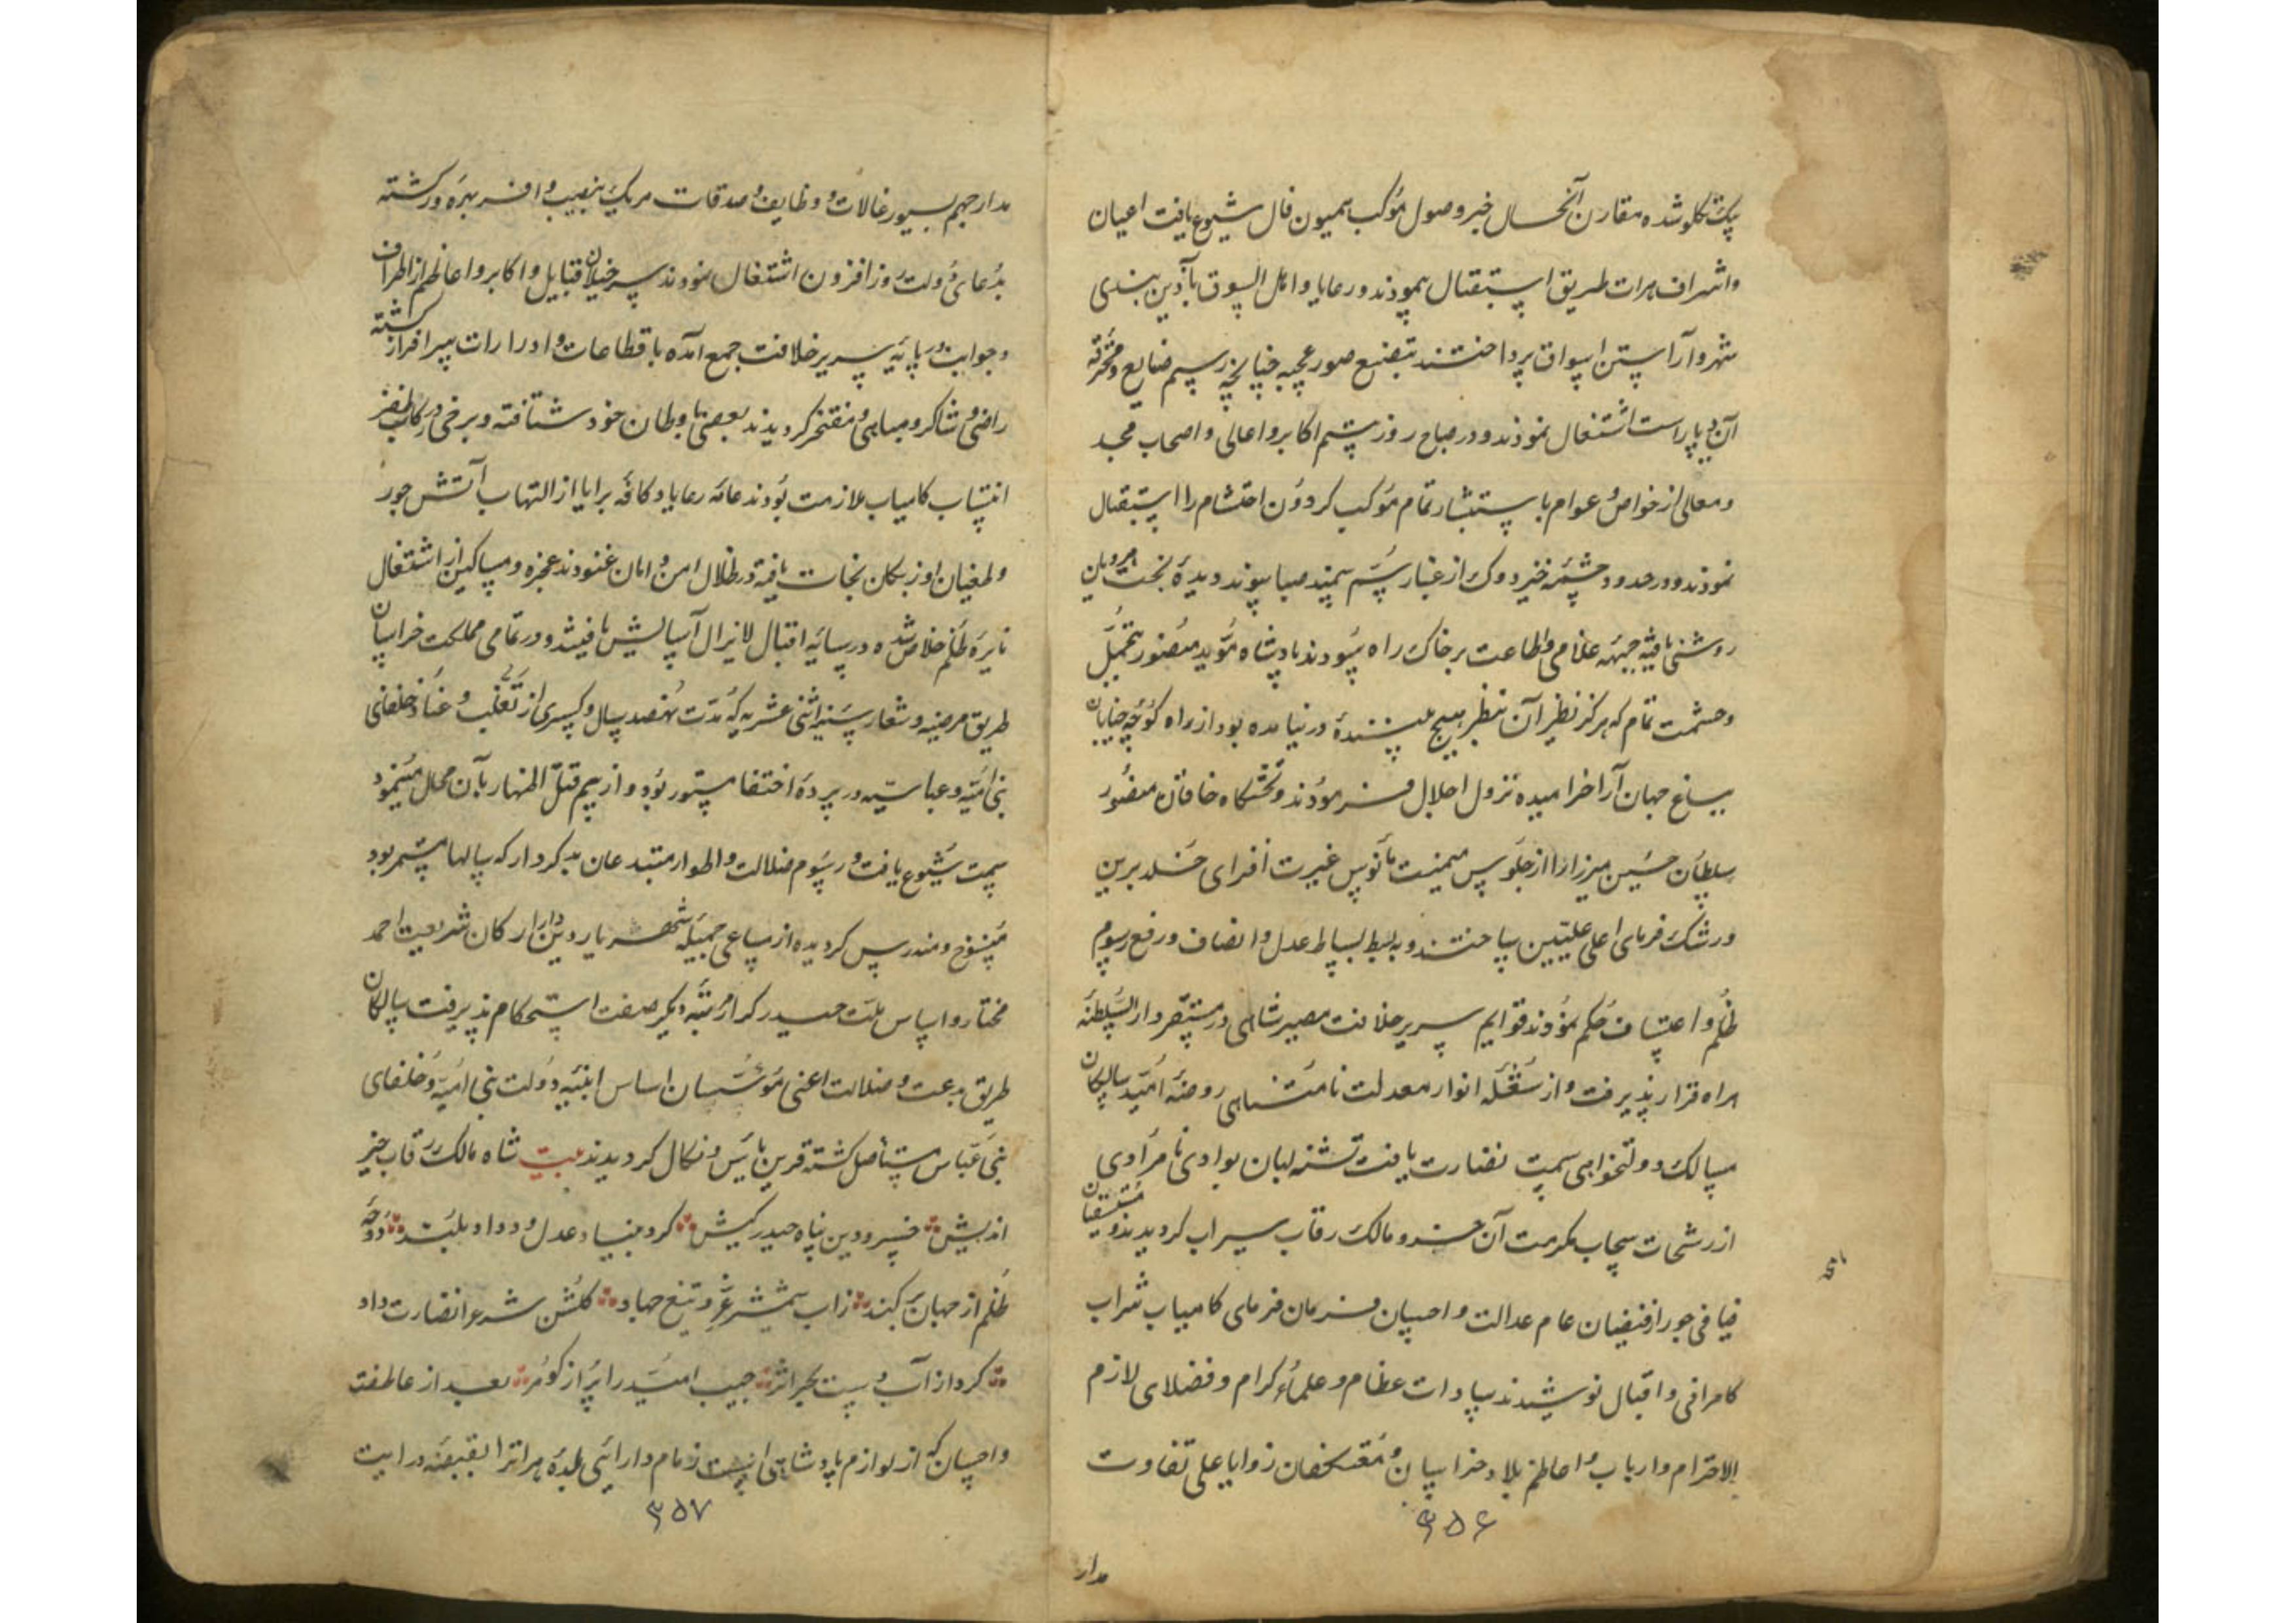 یک کلو شده مقارن آنحال خبر وصول موکب همیون فال شیوع یافت اعیان
واشراف هرات طریق استقبال پیمودند ورعایا واهل السوق بآذین بندی
شهر وآراستن اسواق پرداختند بتصنیع صور عجیبه چنانچه رسم صنایع ومحترفه
آن دیاراست اشتغال نمودند ودر صباح روز اکابر واعالی واصحاب مجد
ومعالی از خواص وعوام با استبشار تمام موکب کردون احتشام را استقبال
نمودند ودر حدود چشمه از غبار سم سمند صبا پیوند دیدهٔ بخت
روشنی یافته جبهه غلامی واطاعت برخاک راه سودند پادشاه موید منصور بتجمل
وحشمت تمام که هرکز نظیر آن بنظر هیچ بیننده در نیامده بود از راه کوچه خیابان
بباغ جهان آرا خرامیده نزول اجلال فرمودند وتختکاه خاقان منصور
سلطان حسین میرزا را از جلوس میمنت مأنوس غیرت افزای خلد برین
ورشک فرمای اعلی علیین ساختند وبه بسط بساط عدل وانصاف ورفع رسوم
ظلم واعتساف حکم نمودند قوایم سریر خلافت مصیر شاهی در مستقر دار السلطنه
هراه قرار پذیرفت واز شعله انوار معدلت نامتناهی روضه امید سالکان
مسالک دولتخواهی سمت نضارت یافت تشنه لبان بوادی نامرادی
از رشحات سحاب مکرمت آن خسرو مالک رقاب سیراب کردیدند
فیافی جور از فیضان عام عدالت واحسان فرمان فرمای کامیاب شراب
کامرانی واقبال نوشیدند سادات عظام وعلماء کرام وفضلای لازم
الاحترام وارباب واعاظم بلاد خراسان ومعتکفان زوایا علی تفاوت
۳۵۶
مدار
مدارجهم بسیورغالات ووظایف وصدقات هریک بنصیب وافر بهره ور کشته
بدعای دولت روز افزون اشتغال نمودند سرخیلان قبایل واکابر واعاظم از اطراف
وجوانب در پایه سریر خلافت جمع آمده باقطاعات وادرارات سرافراز کشته
راضی وشاکر ومباهی ومفتخر کردیدند بعضی باوطان خود شتافته وبرخی در رکاب ظفر
انتساب کامیاب ملازمت بودند عامه رعایا وکافه برایا از التهاب آتش جور
وطغیان اوزبکان نجات یافته در ظلال امن وامان غنودند عجزه ومساکین از اشتغال
نایره ظلم خلاص شده در سایه اقبال لایزال آسایش یافتند ودر تمامی مملکت خراسان
طریق مرضیه وشعار سنیه اثنی عشریه که مدت نهصد سال وکسری از تغلب وعناد خلفای
بنی امیه وعباسیه در پرده اختفا مستور بود واز بیم قتل اظهار بآن محال مینمود
سمت شیوع یافت ورسوم ضلالت واطوار مبتدعان بد کردار که سالها مستمر بود
منسوخ ومندرس کردیده از مساعی جمیله شهریار دین دار ارکان شریعت احمد
مختار واساس ملت حیدر کرار مرتبه دیکر صفت استحکام پذیرفت سالکان
طریق بدعت وضلالت اعنی مؤسسان اساس ابنیه دولت بنی امیه وخلفای
بنی عباس مستأصل کشته قرین یأس ونکال کردیدند بیت شاه مالک رقاب خیر
اندیش خسرو دین پناه حیدر کیش کرد بنیاد عدل وداد بلند دوحه
ظلم از جهان برکند زاب شمشیر غزو وتیغ جهاد کلشن شرع را نضارت داد
کرد از آب دست بحر اثر جیب امید را پر از کوهر بعد از عاطفت
واحسان که از لوازم پادشاهی است زمام دارائی بلدهٔ هرات را بقبضه درایت
۳۵۷